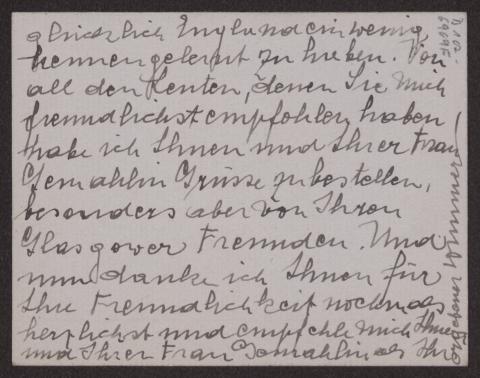 glücklich England ein wenig
kennengelernt zu haben. Von
all den Leuten, denen Sie mich
freundlichst empfohlen haben
habe ich Ihnen und Ihrer Frau
Gemahlin Grüsse zu bestellen,
besonders aber von Ihren
Glasgower Freunden. Und
nun danke ich Ihnen für
Ihre Freundlichkeit nochmals
herzlichst und empfehle mich Ihnen
und Ihrer Frau Gemahlin als Ihr
ergebener